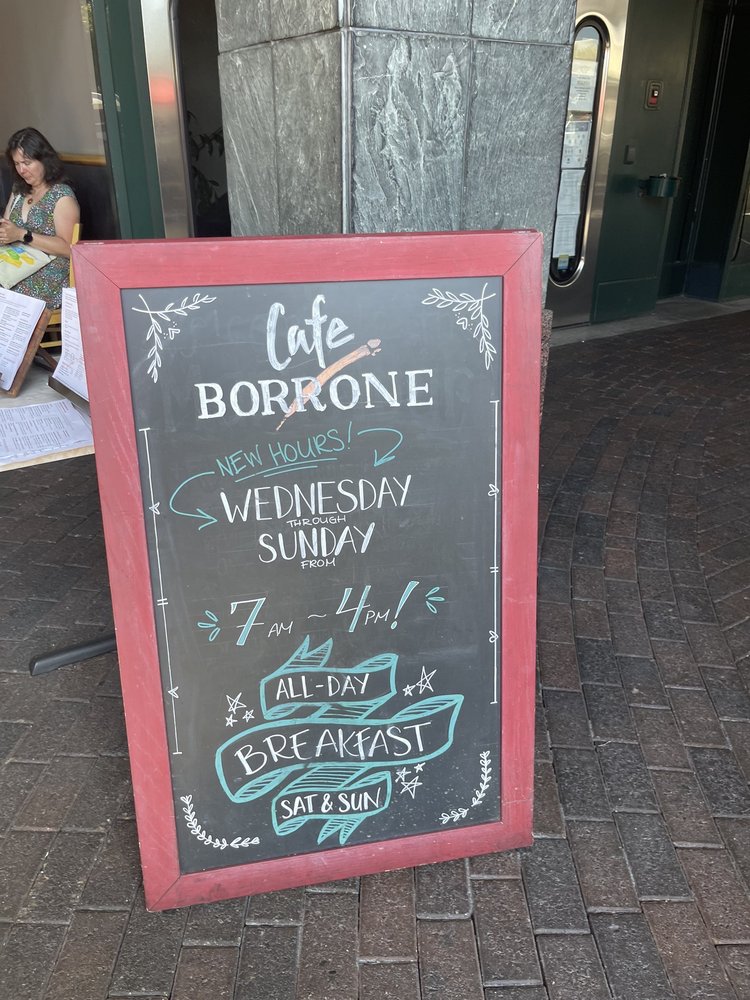 Cafe
BORRONE
NEW HOURS!
WEDNESDAY
THROUGH
SUNDAY
FROM
7 AM ~ 4 PM!
ALL-DAY
BREAKFAST
SAT & SUN